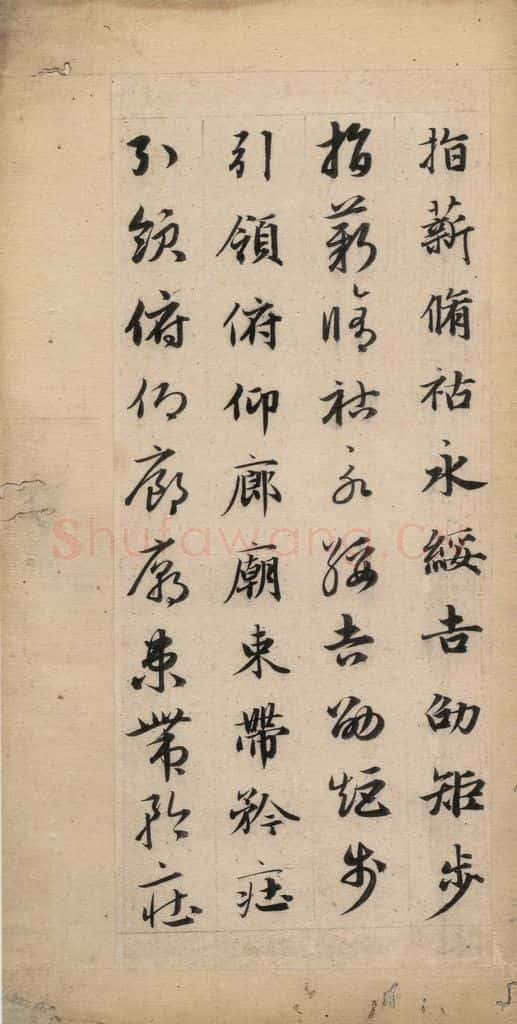 指薪脩祜永綏吉劭矩步
指薪脩祜永綏吉劭矩步
引領俯仰廊廟束帶矜莊
引領俯仰廊廟束帶矜莊
Shufawang.cn